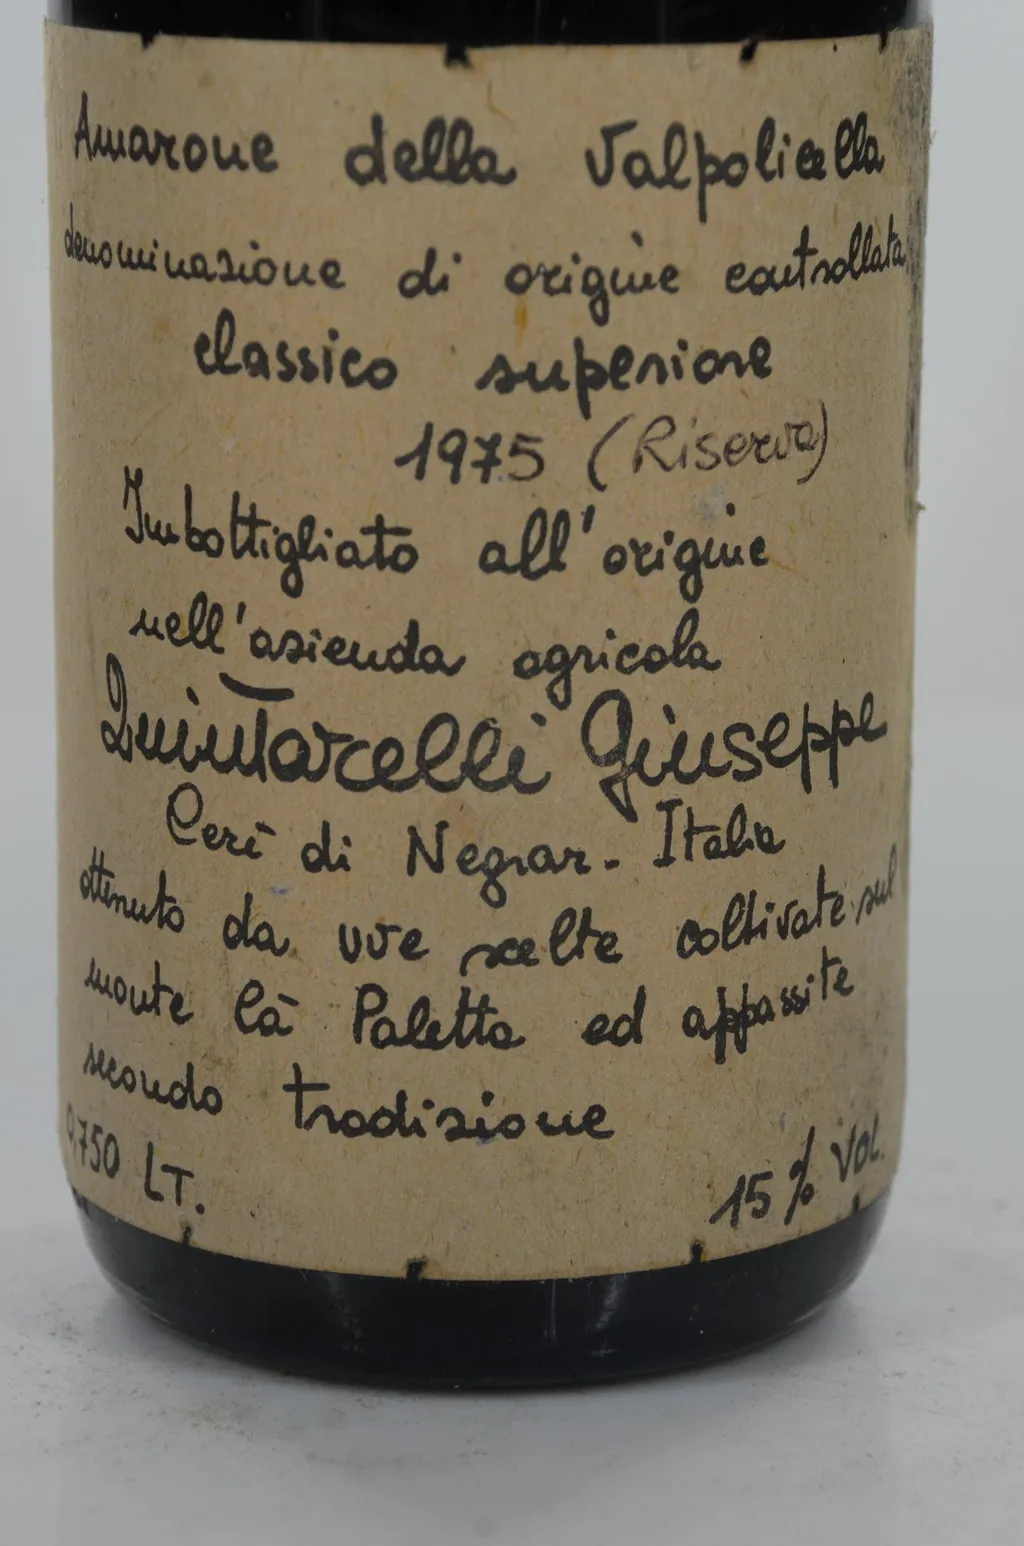 Amarone della Valpolicella
denominazione di origine controllata
classico superiore
1975 (Riserva)
Imbottigliato all'origine
nell'azienda agricola
Quintarelli Giuseppe
Cerè di Negrar - Italia
ottenuto da uve scelte coltivate sul
monte Cà Paletta ed appassite
secondo tradizione
0,750 LT.
15% VOL.